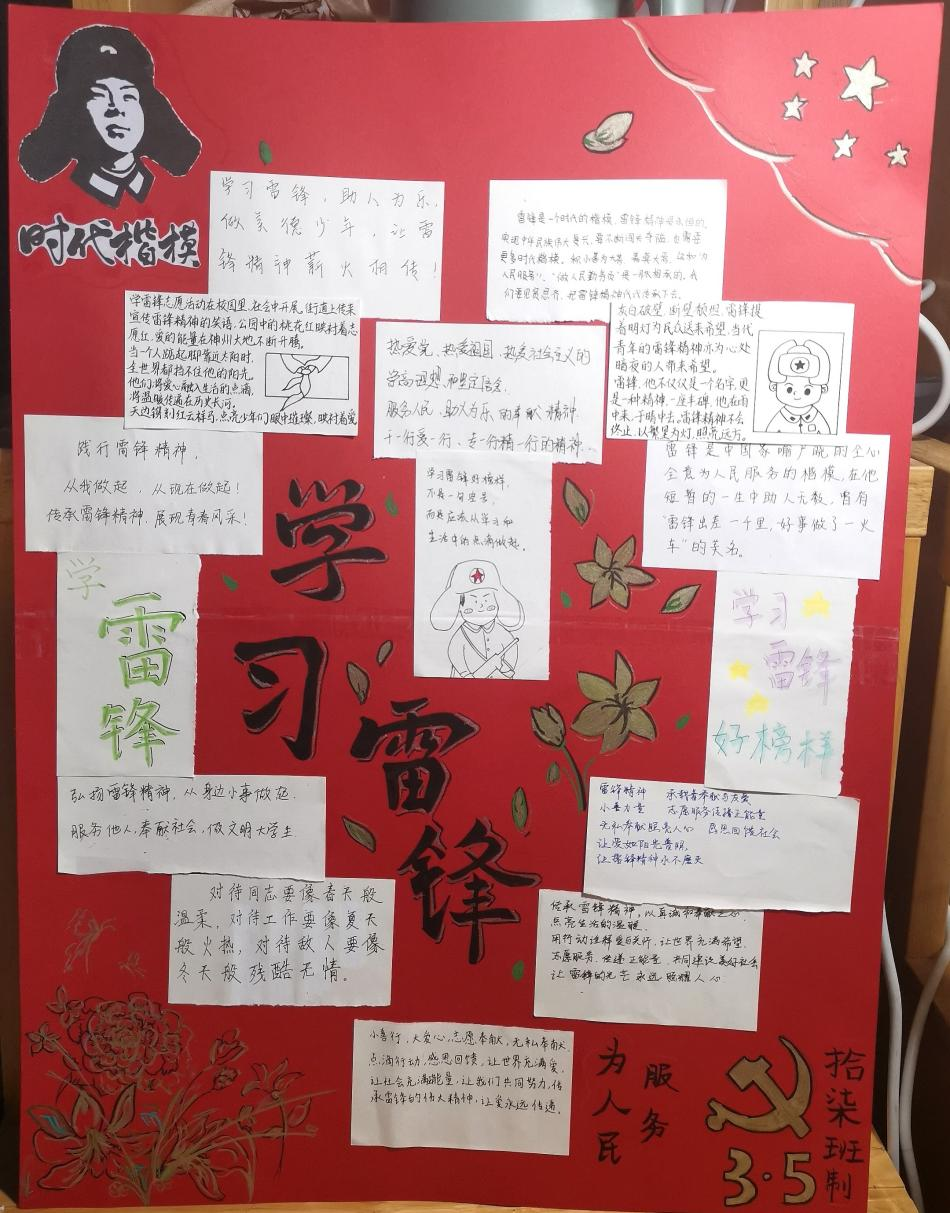 时代楷模
学习雷锋，助人为乐，
做美德少年，让雷
锋精神薪火相传！
雷锋是一个时代的楷模，雷锋精神是永恒的，
实现中华民族伟大复兴，要不断闯关夺隘，也需要
更多时代楷模。积小善为大善，善莫大焉，这和"为
人民服务"、"做人民勤务员"是一脉相承的，我
们要见贤思齐，把雷锋精神代代传承下去。
学雷锋志愿活动在校园里，在会中开展，街道上传来
宣传雷锋精神的笑语，公园中的桃花红映衬着志
愿红，爱的能量在神州大地不断升腾，
当一个人踮起脚靠近太阳时，
全世界都挡不住他的阳光。
他们将爱心融入生活的点滴，
将温暖传递在历史长河。
天边镌刻红云样芍，点亮少年们眼中璀璨，映衬着爱
热爱党、热爱祖国、热爱社会主义的
崇高理想和坚定信念
服务人民、助人为乐的奉献精神
干一行爱一行、专一行精一行的精神
灰白破壁，断壁颓垣，雷锋提
着明灯为民众送来希望，当代
青年的雷锋精神亦为心处
暗夜的人带来希望。
雷锋，他不仅仅是一个名字，更
是一种精神，一座丰碑，他在雨
中来，于晴中去。雷锋精神不会
终止，以繁星为灯，照亮远方。
践行雷锋精神，
从我做起，从现在做起！
传承雷锋精神，展现青春风采！
学习雷锋好榜样，
不是一句空号，
而是应该从学习和
生活中的点滴做起。
雷锋是中国家喻户晓的全心
全意为人民服务的楷模，在他
短暂的一生中助人无数，留有
"雷锋出差一千里，好事做了一火
车"的美名。
学
雷
锋
学习
雷锋
好榜样
学
习
雷
锋
弘扬雷锋精神，从身边小事做起
服务他人，奉献社会，做文明大学生
雷锋精神 承载着奉献与友爱
小善力量 志愿服务传播正能量
无私奉献照亮人心 感恩回馈社会
让爱如阳光普照，
让雷锋精神永不磨灭
对待同志要像春天般
温柔，对待工作要像夏天
般火热，对待敌人要像
冬天般残酷无情。
传承雷锋精神，以真诚和奉献之心
点亮生活的温暖，
用行动诠释爱与关怀，让世界充满希望
志愿服务，传递正能量，共同建设美好社会
让雷锋的光芒永远照耀人心
小善行，大爱心，志愿奉献，无私奉献，
点滴行动，感恩回馈，让世界充满爱，
让社会充满能量，让我们共同努力，传
承雷锋的伟大精神，让爱永远传递。
为人民
服务
3·5
拾柒班制